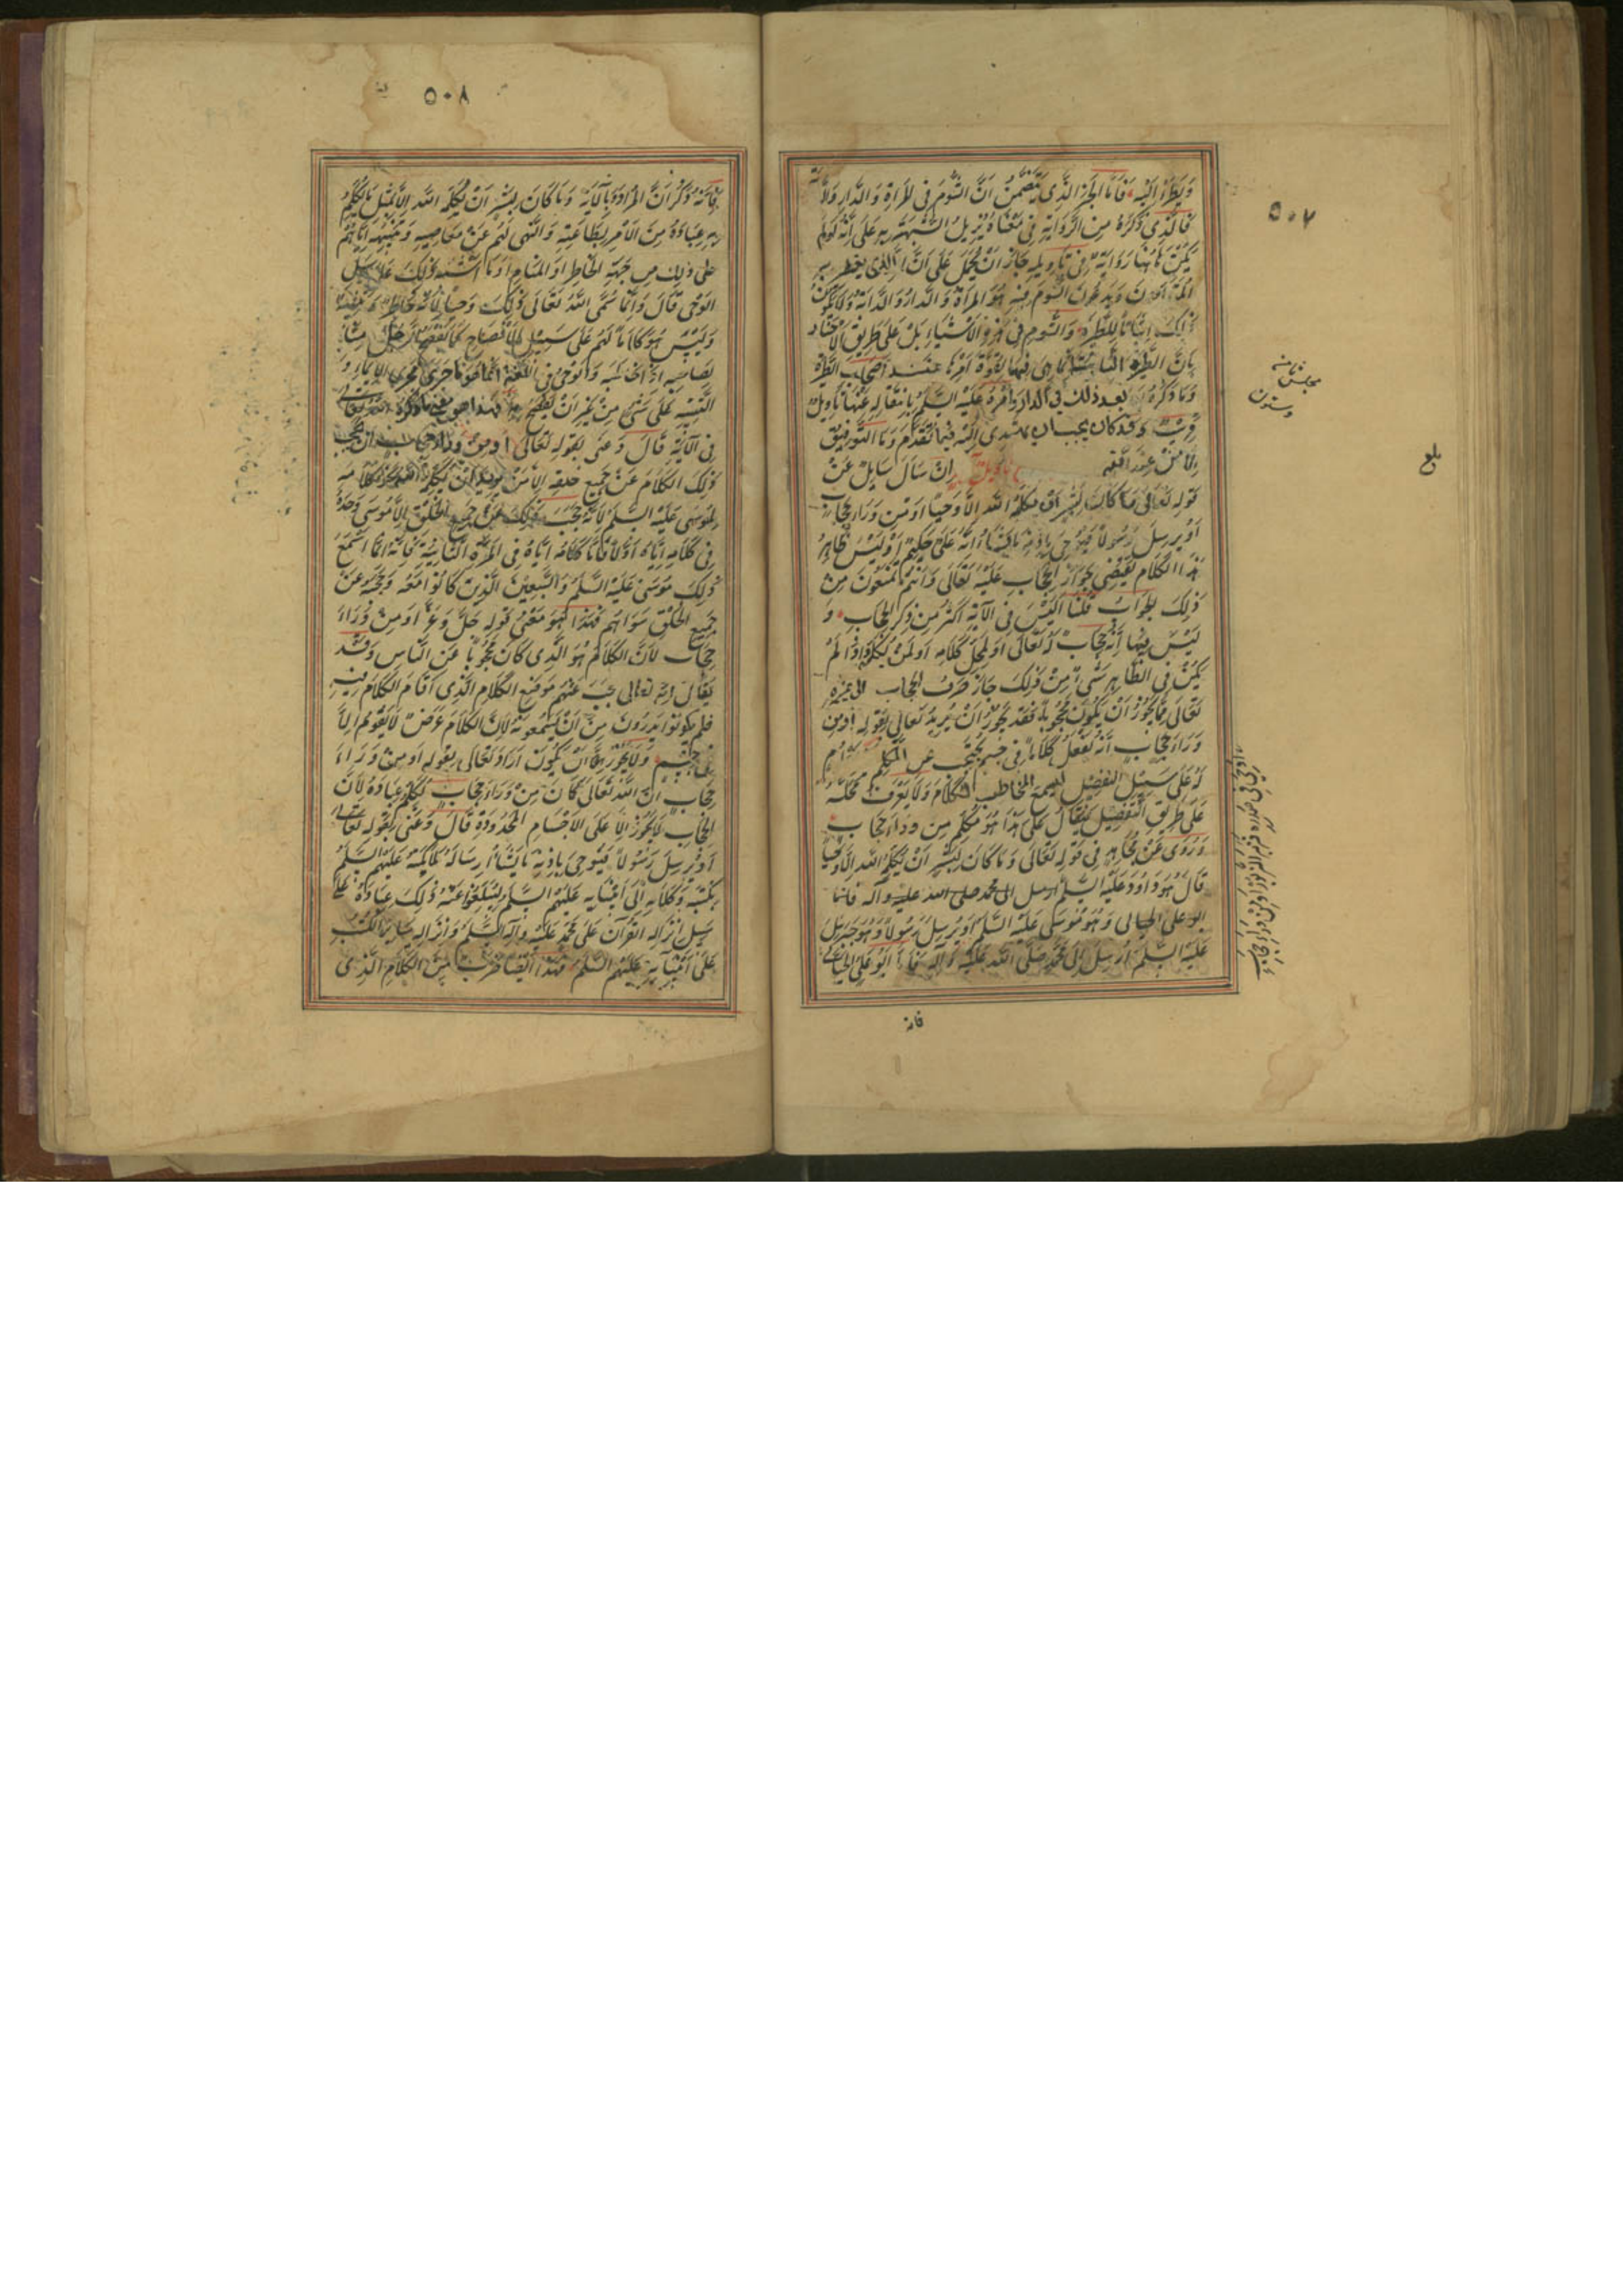 ٥٠٧
وَيُطَّيَّرُ إِلَيْهِ فَأَمَّا الْخَبَرُ الَّذِي يَتَضَمَّنُ أَنَّ الشُّومَ فِي الْمَرْأَةِ وَالدَّارِ وَالدَّابَّة
فَالَّذِي ذَكَرَهُ مِنَ الرِّوَايَةِ فِي مَعْنَاهُ يُزِيلُ الشُّبْهَةَ بِهِ عَلَى أَنَّهُ لَوْ لَمْ
يَكُنْ هَاهُنَا رِوَايَةٌ فِي تَأْوِيلِهِ جَازَ أَنْ يُحْمَلَ عَلَى أَنَّ الَّذِي يتطير به
المتطيرون وَيَدَّعُونَ الشُّومَ فِيهِ هُوَ الْمَرْأَةُ وَالدَّارُ وَالدَّابَّةُ وَلَا يَكُونُ
ذَلِكَ إِثْبَاتًا لِلطِّيَرَةِ وَالشُّومِ فِي هَذِهِ الْأَشْيَاءِ بَلْ عَلَى طَرِيقِ الْإِخْبَار
بِأَنَّ الطِّيَرَةَ الثَّابِتَةَ إِنَّمَا هِيَ فِيهَا لِقُوَّةِ أَمْرِهَا عِنْدَ أَصْحَابِ الطِّيَرَةِ
وَمَا ذَكَرَهُ بعد ذلك فِي الدار وَأَمْرُهُ عَلَيْهِ السَّلَمُ بِانْتِقَالِهِ عَنْهَا تَأْوِيلٌ
قَرِيبٌ وقد كان يجب ان يهتدى إِلَيْهِ فِيمَا تَقَدَّمَ وَمَا التَّوْفِيقُ
إِلَّا مِنْ عِنْدِ اللَّهِ تَأْوِيلُ آيَةٍ إِنْ سَأَلَ سَائِلٌ عَنْ
قَوْلِهِ تَعَالَى مَا كَانَ لِبَشَرٍ أَنْ يُكَلِّمَهُ اللَّهُ إِلَّا وَحْيًا أَوْ مِنْ وَرَاءِ حِجَابٍ
أَوْ يُرْسِلَ رَسُولًا فَيُوحِيَ بِإِذْنِهِ مَا يَشَاءُ إِنَّهُ عَلِيٌّ حَكِيمٌ أَوَلَيْسَ ظَاهِرُ
هَذَا الْكَلَامِ يَقْتَضِي جَوَازَ الْحِجَابِ عَلَيْهِ تَعَالَى وَأَنْتُمْ تَمْنَعُونَ مِنْ
ذَلِكَ الْجَوَابُ قُلْنَا أَلَيْسَ فِي الْآيَةِ أَكْثَرُ مِنْ ذِكْرِ الْحِجَابِ وَ
لَيْسَ فِيهَا أَنَّهُ حِجَابٌ لَهُ تَعَالَى أَوْ لِمَحَلِّ كَلَامِهِ أَوْ لِمَنْ يُكَلِّمُهُ وَإِذَا لَمْ
يَكُنْ فِي الظَّاهِرِ شَيْءٌ مِنْ ذَلِكَ جَازَ صَرْفُ الْحِجَابِ الى غيره
تَعَالَى مِمَّا يَجُوزُ أَنْ يَكُونَ مَحْجُوبًا فَقَدْ يَجُوزُ أَنْ يُرِيدَ تَعَالَى بِقَوْلِهِ أَوْ مِنْ
وَرَاءِ حِجَابٍ أَنَّهُ يَفْعَلُ كَلَامًا فِي جِسْمٍ مُحْتَجِبٍ عن المكلم
لَهُ عَلَى سَبِيلِ التَّفْصِيلِ فيسمع المخاطب الْكَلَامَ وَلَا يَعْرِفُ مَحَلَّهُ
عَلَى طَرِيقِ التَّفْصِيلِ فَيُقَالُ عَلَى هَذَا هُوَ مُكَلَّمٌ مِنْ وَرَاءِ حِجَابٍ
وَرُوِيَ عَنْ مُجَاهِدٍ فِي قَوْلِهِ تَعَالَى وَمَا كَانَ لِبَشَرٍ أَنْ يُكَلِّمَهُ اللَّهُ إِلَّا وَحْيًا
قَالَ هُوَ دَاوُدُ عَلَيْهِ السَّلَمُ ارسل الى محمد صلى الله عليه وآله فاما
ابو على الجبائى وَهُوَ مُوسَى عَلَيْهِ السَّلَمُ أَوْ يُرْسِلَ رَسُولًا وَهُوَ جَبْرَئِيلُ
عَلَيْهِ السَّلَمُ أُرْسِلَ إِلَى مُحَمَّدٍ صَلَّى اللَّهُ عَلَيْهِ وَآلِهِ فَأَمَّا أَبُو عَلِيٍّ الْجُبَّائِيُّ
فانه
مجلس ثامن
وستون
بلغ
٥٠٨
فَإِنَّهُ ذَكَرَ أَنَّ الْمُرَادَ بِالْآيَةِ وَمَا كَانَ لِبَشَرٍ أَنْ يُكَلِّمَهُ اللَّهُ إِلَّا مِثْلَ مَا يُكَلِّمُ
بِهِ عِبَادَهُ مِنَ الْأَمْرِ بِطَاعَتِهِ وَالنَّهْيِ لَهُمْ عَنْ مَعَاصِيهِ وَتَنْبِيهِهِ إِيَّاهُمْ
على ذلك من جِهَةِ الْخَاطِرِ أَوِ الْمَنَامِ أَوْ مَا أَشْبَهَ ذَلِكَ عَلَى سَبِيلِ
الْوَحْيِ قَالَ وَإِنَّمَا سَمَّى اللَّهُ تَعَالَى ذَلِكَ وَحْيًا لِأَنَّهُ خَاطِرٌ وَتَنْبِيهٌ
وَلَيْسَ هُوَ كَلَامًا لَهُمْ عَلَى سَبِيلِ الْإِفْصَاحِ كَمَا يُفْصِحُ الرَّجُلُ مِنَّا
لصاحبه إذا خاطبه وَالْوَحْيُ فِي اللُّغَةِ انما هو ما جرى مجرى الإيماء و
التَّنْبِيهِ عَلَى شَيْءٍ مِنْ غَيْرِ أَنْ يُفْصَحَ به فهذا هو معنى ما ذكره الله تعالى
فِي الْآيَةِ قَالَ وَعَنَى بِقَوْلِهِ تَعَالَى او من وراء حجاب ان يحجب
ذَلِكَ الْكَلَامَ عَنْ جَمِيعِ خَلْقِهِ إِلَّا مَنْ يريد ان يكلمه به نحو كلامه
لِمُوسَى عَلَيْهِ السَّلَمُ لِأَنَّهُ حَجَبَ ذلك عن جميع الْخَلْقِ إِلَّا مُوسَى وَحْدَهُ
فِي كَلَامِهِ إِيَّاهُ أَوَّلًا فَأَمَّا كَلَامُهُ إِيَّاهُ فِي الْمَرَّةِ الثَّانِيَةِ فَإِنَّهُ إِنَّمَا أَسْمَعَ
ذَلِكَ مُوسَى عَلَيْهِ السَّلَمُ وَالسَّبْعِينَ الَّذِينَ كَانُوا مَعَهُ وَحَجَبَهُ عَنْ
جَمِيعِ الْخَلْقِ سِوَاهُمْ فَهَذَا هُوَ مَعْنَى قَوْلِهِ جَلَّ وَعَزَّ أَوْ مِنْ وَرَاءِ
حِجَابٍ لِأَنَّ الْكَلَامَ هُوَ الَّذِي كَانَ مَحْجُوبًا عَنِ النَّاسِ وَقَدْ
يُقَالُ انه تعالى حَجَبَ عَنْهُمْ مَوْضِعَ الْكَلَامِ الَّذِي أَقَامَ الْكَلَامَ فِيهِ
فلم يكونوا يَدْرُونَ مِنْ أَيْنَ يَسْمَعُونَهُ لِأَنَّ الْكَلَامَ عَرَضٌ لَا يَقُومُ إِلَّا
فِي جِسْمٍ وَلَا يَجُوزُ أَنْ يَكُونَ أَرَادَ تَعَالَى بِقَوْلِهِ أَوْ مِنْ وَرَاءِ
حِجَابٍ أَنَّ اللَّهَ تَعَالَى كَانَ مِنْ وَرَاءِ حِجَابٍ يُكَلِّمُ عِبَادَهُ لِأَنَّ
الْحِجَابَ لَا يَجُوزُ إِلَّا عَلَى الْأَجْسَامِ الْمَحْدُودَةِ قَالَ وَعَنَى بِقَوْلِهِ تَعَالَى
أَوْ يُرْسِلَ رَسُولًا فَيُوحِيَ بِإِذْنِهِ مَا يَشَاءُ إِرْسَالَهُ مَلَائِكَتَهُ عَلَيْهِمُ السَّلَمُ
بِكُتُبِهِ وَكَلَامِهِ إِلَى أَنْبِيَائِهِ عَلَيْهِمُ السَّلَمُ لِيُبَلِّغُوا عَنْهُ ذَلِكَ عِبَادَهُ عَلَى
سَبِيلِ إِنْزَالِهِ الْقُرْآنَ عَلَى مُحَمَّدٍ عَلَيْهِ وَآلِهِ السَّلَمُ وَإِنْزَالِهِ سَائِرَ الْكُتُبِ
عَلَى أَنْبِيَائِهِ عَلَيْهِمُ السَّلَمُ فَهَذَا أَيْضًا ضَرْبٌ مِنَ الْكَلَامِ الَّذِي